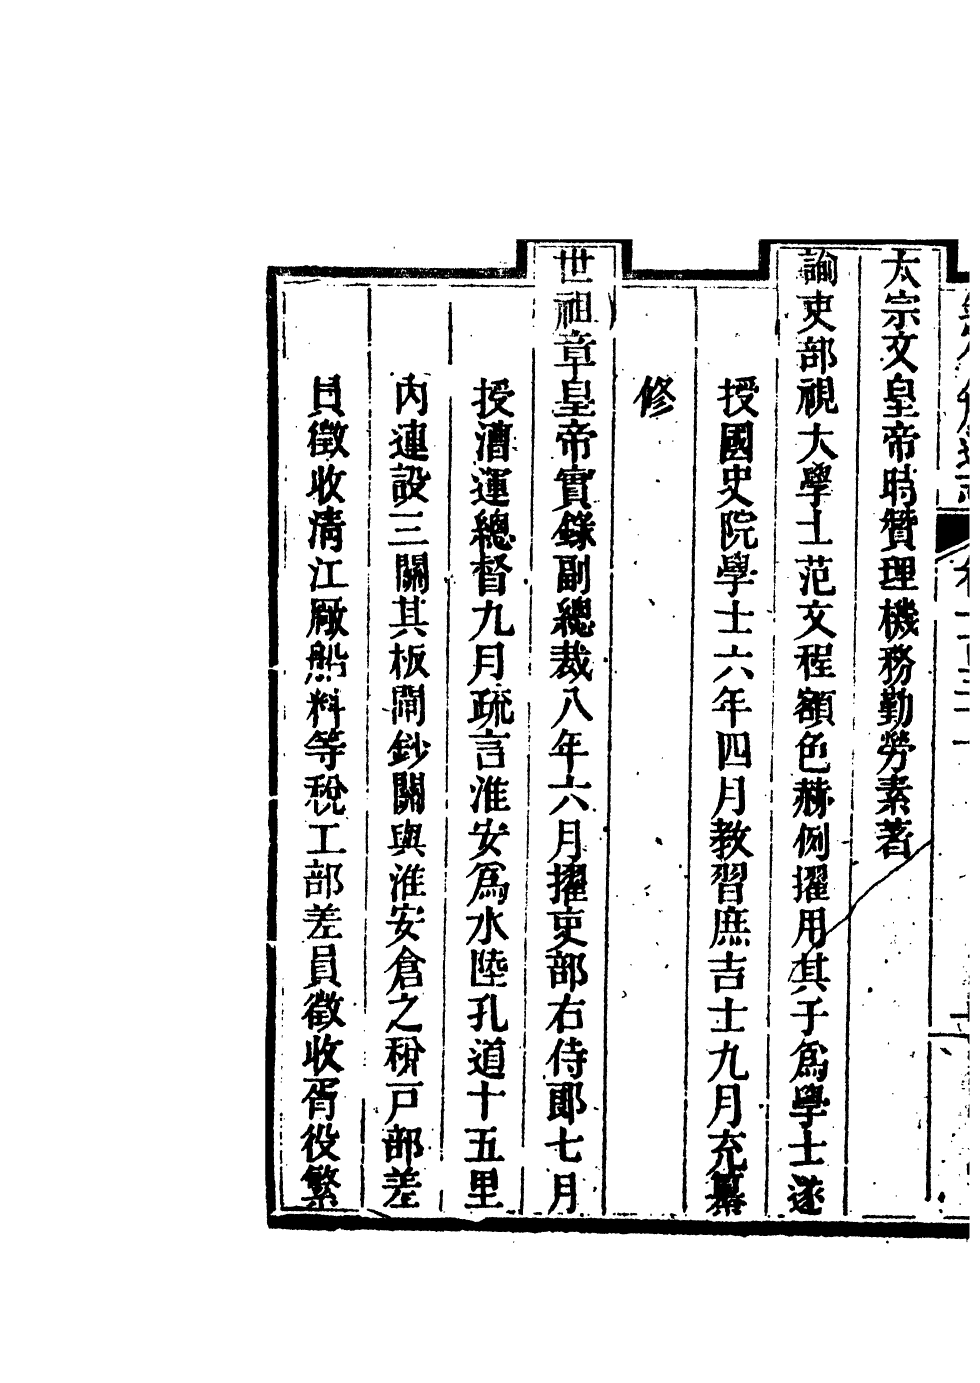 太宗文皇帝時贊理機務勤勞素著
諭吏部視大學士范文程額色赫例擢用其子爲學士遂
授國史院學士六年四月教習庶吉士九月充纂
修
世祖章皇帝實錄副總裁八年六月擢吏部右侍郎七月
授漕運總督九月疏言淮安爲水陸孔道十五里
內連設三關其板閘鈔關與淮安倉之稅戸部差
員徵收清江厰船料等稅工部差員徵收胥役繁